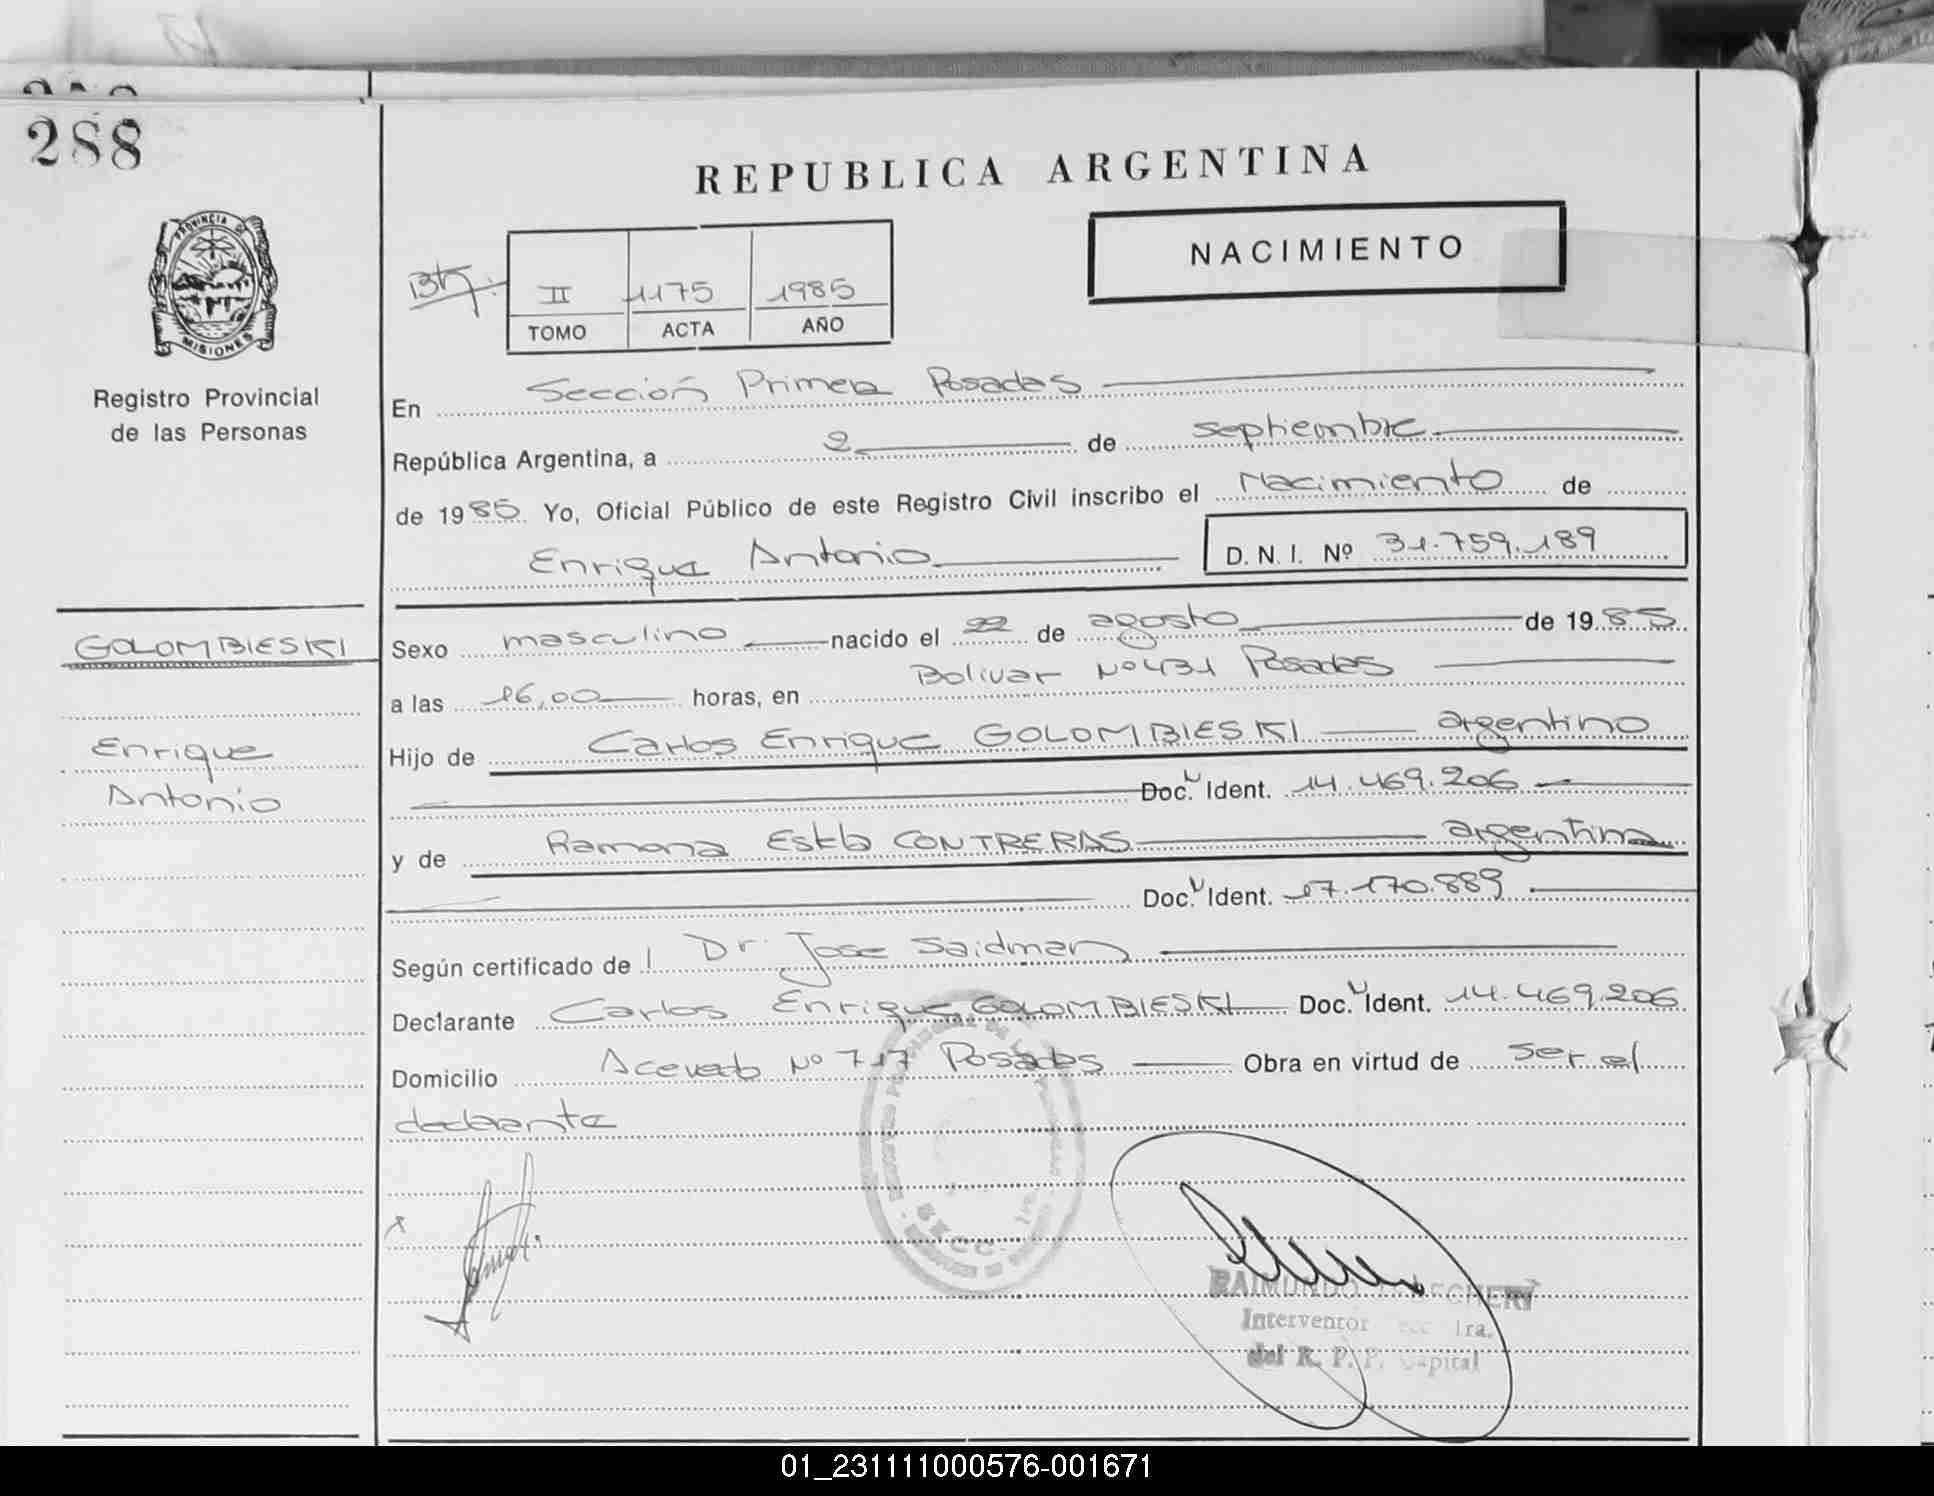 288
PROVINCIA DE
MISIONES
Registro Provincial
de las Personas
GOLOMBIESKI
Enrique
Antonio
REPUBLICA ARGENTINA
NACIMIENTO
II 1175 1985
TOMO ACTA AÑO
En Sección Primera Posadas
República Argentina, a 2 de septiembre
de 1985 Yo, Oficial Público de este Registro Civil inscribo el Nacimiento de
Enrique Antonio D.N.I. Nº 31.759.189
Sexo masculino nacido el 22 de agosto de 1985
a las 16,00 horas, en Bolivar Nº 431 Posadas
Hijo de Carlos Enrique GOLOMBIESKI argentino
Doc. Ident. 14.469.206
y de Ramona Estela CONTRERAS argentina
Doc. Ident. 17.170.889
Según certificado de Dr. Jose Saidman
Declarante Carlos Enrique GOLOMBIESKI Doc. Ident. 14.469.206
Domicilio Acevedo Nº 717 Posadas Obra en virtud de ser el
declarante
SECC. 1ra.
RAIMUNDO
Interventor Secc 1ra.
del R. P. P. Capital
01_231111000576-001671